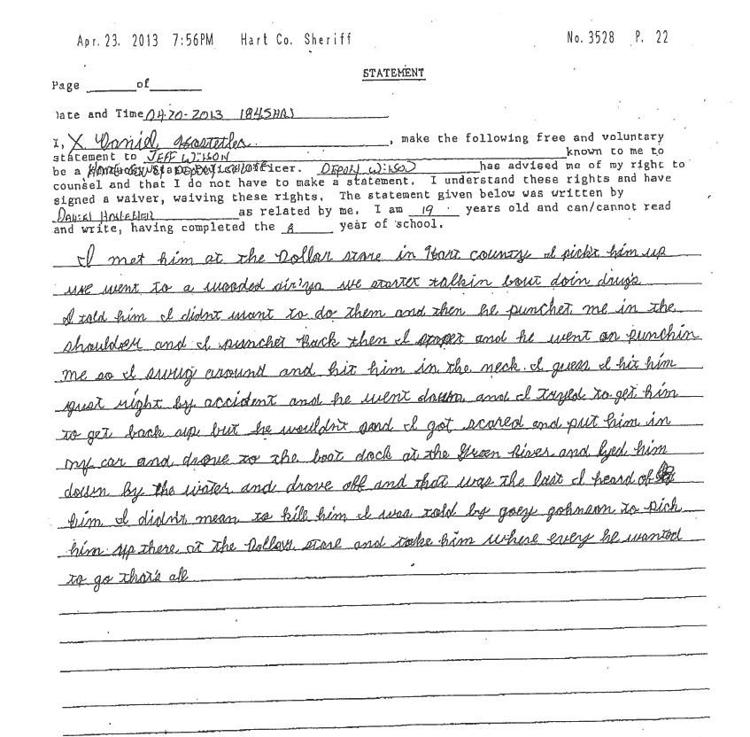 Apr. 23. 2013 7:56PM Hart Co. Sheriff No. 3528 P. 22
STATEMENT
Page ______of______
Date and Time 04-20-2013 1845HRS
I, X Daniel Hostetler, make the following free and voluntary
statement to JEFF WILSON known to me to
be a officer. DEPUTY WILSON has advised me of my right to
counsel and that I do not have to make a statement. I understand these rights and have
signed a waiver, waiving these rights. The statement given below was written by
Daniel Hostetler as related by me. I am 19 years old and can/cannot read
and write, having completed the 8 year of school.
I met him at the Dollar store in Hart county I pickt him up
we went to a wooded air'ya we startet talkin bout doin drugs
I told him I didnt want to do them and then he punchet me in the
shoulder and I punchet back then I and he went on punchin
me so I swung around and hit him in the neck. I guess I hit him
just right by accident and he went down and I tryed to get him
to get back up but he wouldn't and I got scared and put him in
my car and drove to the boat dock at the Green River and layed him
down by the water and drove off and that was the last I heard of
him I didn't mean to kill him I was told by joey johnson to pick
him up there at the Dollar store and take him where every he wanted
to go that's all